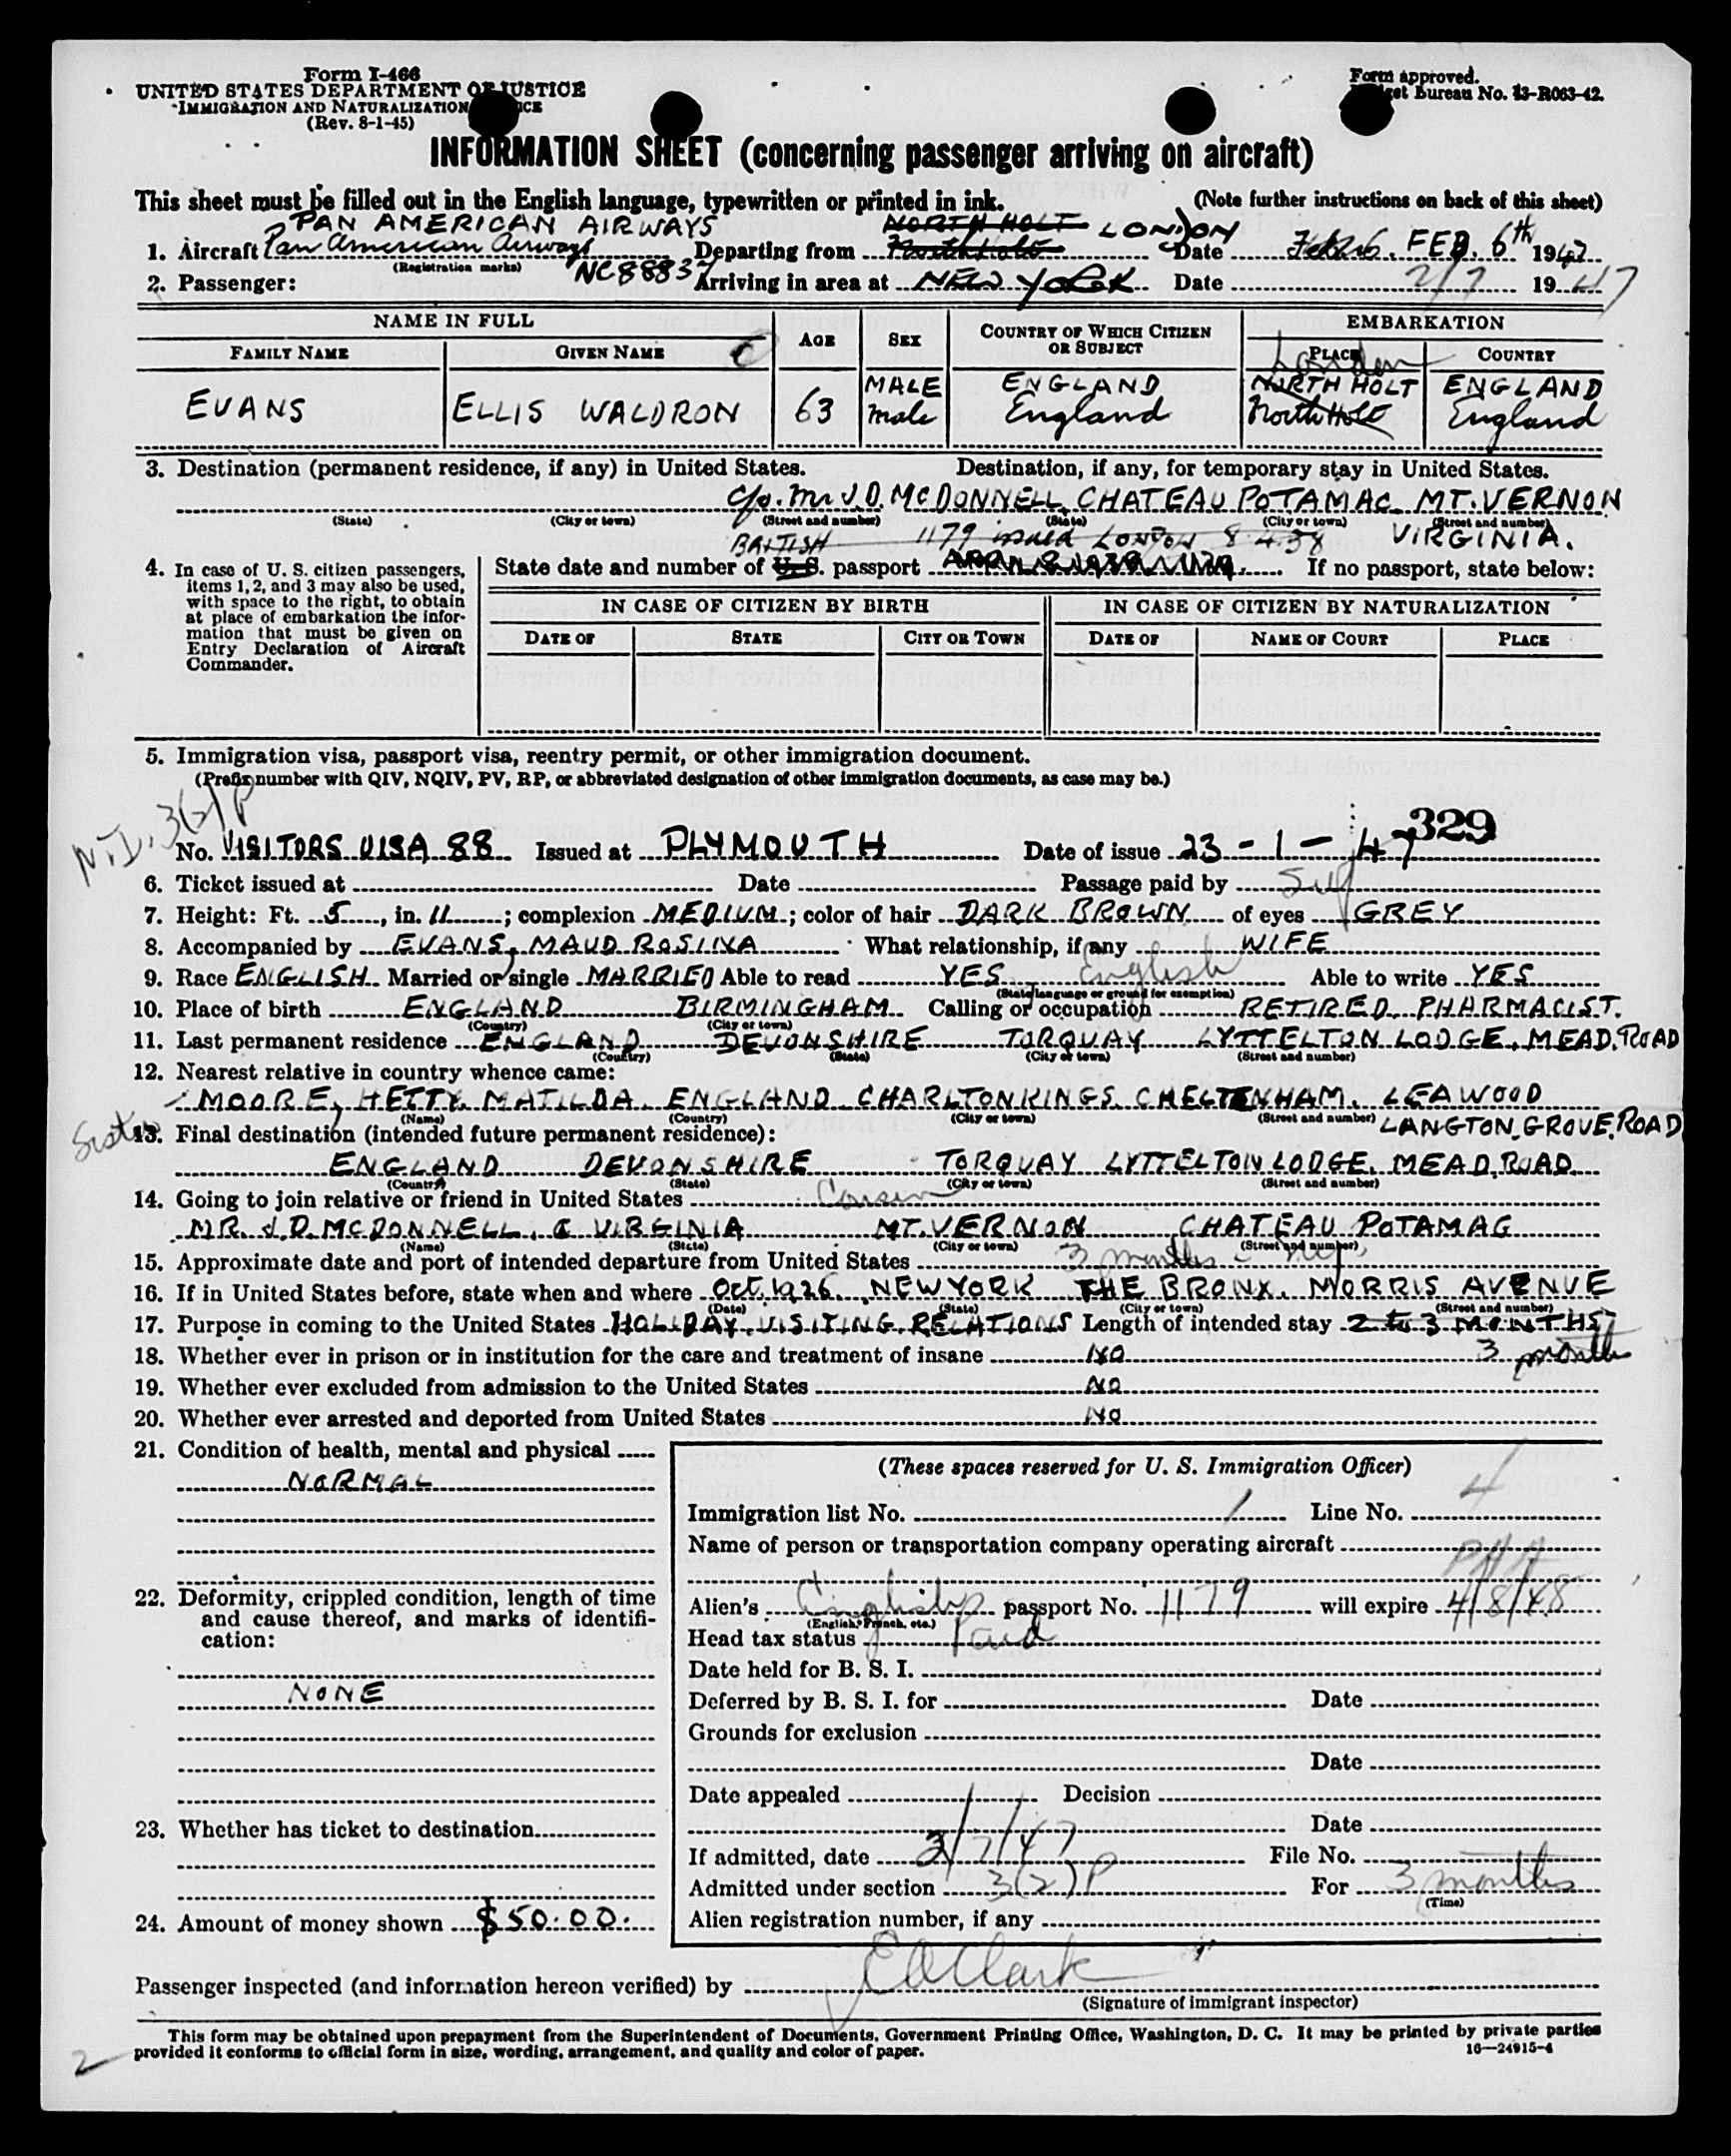 Form I-466
UNITED STATES DEPARTMENT OF JUSTICE
IMMIGRATION AND NATURALIZATION
(Rev. 8-1-45)
Form approved.
Bureau No. 43-R063-42.
INFORMATION SHEET (concerning passenger arriving on aircraft)
This sheet must be filled out in the English language, typewritten or printed in ink. (Note further instructions on back of this sheet)
PAN AMERICAN AIRWAYS NORTH HOLT LONDON
1. Aircraft Pan American Airways Departing from North Holt Date Feb 6. FEB. 6th 1947
(Registration marks) NC88837
2. Passenger: Arriving in area at NEW YORK Date 2/7 1947
NAME IN FULL AGE SEX COUNTRY OF WHICH CITIZEN OR SUBJECT EMBARKATION
FAMILY NAME GIVEN NAME PLACE COUNTRY
London
MALE ENGLAND NORTH HOLT ENGLAND
EVANS ELLIS WALDRON 63 Male England North Holt England
3. Destination (permanent residence, if any) in United States. Destination, if any, for temporary stay in United States.
c/o. Mr J.D. McDONNELL, CHATEAU POTAMAC MT. VERNON
(State) (City or town) (Street and number) (State) (City or town) (Street and number)
VIRGINIA.
BRITISH 1179 issued LONDON 8 4.38
4. In case of U. S. citizen passengers, items 1, 2, and 3 may also be used, with space to the right, to obtain at place of embarkation the information that must be given on Entry Declaration of Aircraft Commander.
State date and number of U. S. passport If no passport, state below:
IN CASE OF CITIZEN BY BIRTH IN CASE OF CITIZEN BY NATURALIZATION
DATE OF STATE CITY OR TOWN DATE OF NAME OF COURT PLACE
5. Immigration visa, passport visa, reentry permit, or other immigration document.
(Prefix number with QIV, NQIV, PV, RP, or abbreviated designation of other immigration documents, as case may be.)
3(2)P
329
No. VISITORS VISA 88 Issued at PLYMOUTH Date of issue 23 - 1 - 47
6. Ticket issued at Date Passage paid by Self
7. Height: Ft. 5, in. 11; complexion MEDIUM; color of hair DARK BROWN of eyes GREY
8. Accompanied by EVANS, MAUD ROSINA What relationship, if any WIFE
9. Race ENGLISH Married or single MARRIED Able to read YES English Able to write YES
(State language or ground for exemption)
10. Place of birth ENGLAND BIRMINGHAM Calling or occupation RETIRED PHARMACIST.
(Country) (City or town)
11. Last permanent residence ENGLAND DEVONSHIRE TORQUAY LYTTELTON LODGE, MEAD, ROAD
(Country) (State) (City or town) (Street and number)
12. Nearest relative in country whence came:
MOORE, HETTY MATILDA. ENGLAND CHARLTON KINGS. CHELTENHAM. LEAWOOD
(Name) (Country) (City or town) (Street and number) LANGTON GROVE ROAD
Sister
13. Final destination (intended future permanent residence):
ENGLAND DEVONSHIRE TORQUAY LYTTELTON LODGE. MEAD ROAD
(Country) (State) (City or town) (Street and number)
14. Going to join relative or friend in United States Cousin
MR. J.D. McDONNELL, VIRGINIA MT. VERNON CHATEAU POTAMAC
(Name) (State) (City or town) (Street and number)
15. Approximate date and port of intended departure from United States 3 months - NY
16. If in United States before, state when and where Oct. 1926 NEW YORK THE BRONX. MORRIS AVENUE
(Date) (State) (City or town) (Street and number)
17. Purpose in coming to the United States HOLIDAY, VISITING RELATIONS Length of intended stay 2 to 3 MONTHS
3 months
18. Whether ever in prison or in institution for the care and treatment of insane NO
19. Whether ever excluded from admission to the United States NO
20. Whether ever arrested and deported from United States NO
21. Condition of health, mental and physical
NORMAL
22. Deformity, crippled condition, length of time and cause thereof, and marks of identification:
NONE
23. Whether has ticket to destination
24. Amount of money shown $50.00.
(These spaces reserved for U. S. Immigration Officer)
Immigration list No. 1 Line No. 4
Name of person or transportation company operating aircraft
PAA
Alien's English passport No. 1179 will expire 4/8/48
(English, French, etc.)
Head tax status Paid
Date held for B. S. I.
Deferred by B. S. I. for Date
Grounds for exclusion
Date
Date appealed Decision
Date
If admitted, date 2/7/47 File No.
Admitted under section 3(2)P For 3 months
(Time)
Alien registration number, if any
Passenger inspected (and information hereon verified) by E O Clark
(Signature of immigrant inspector)
This form may be obtained upon prepayment from the Superintendent of Documents, Government Printing Office, Washington, D. C. It may be printed by private parties
provided it conforms to official form in size, wording, arrangement, and quality and color of paper.
16—24915-4
2